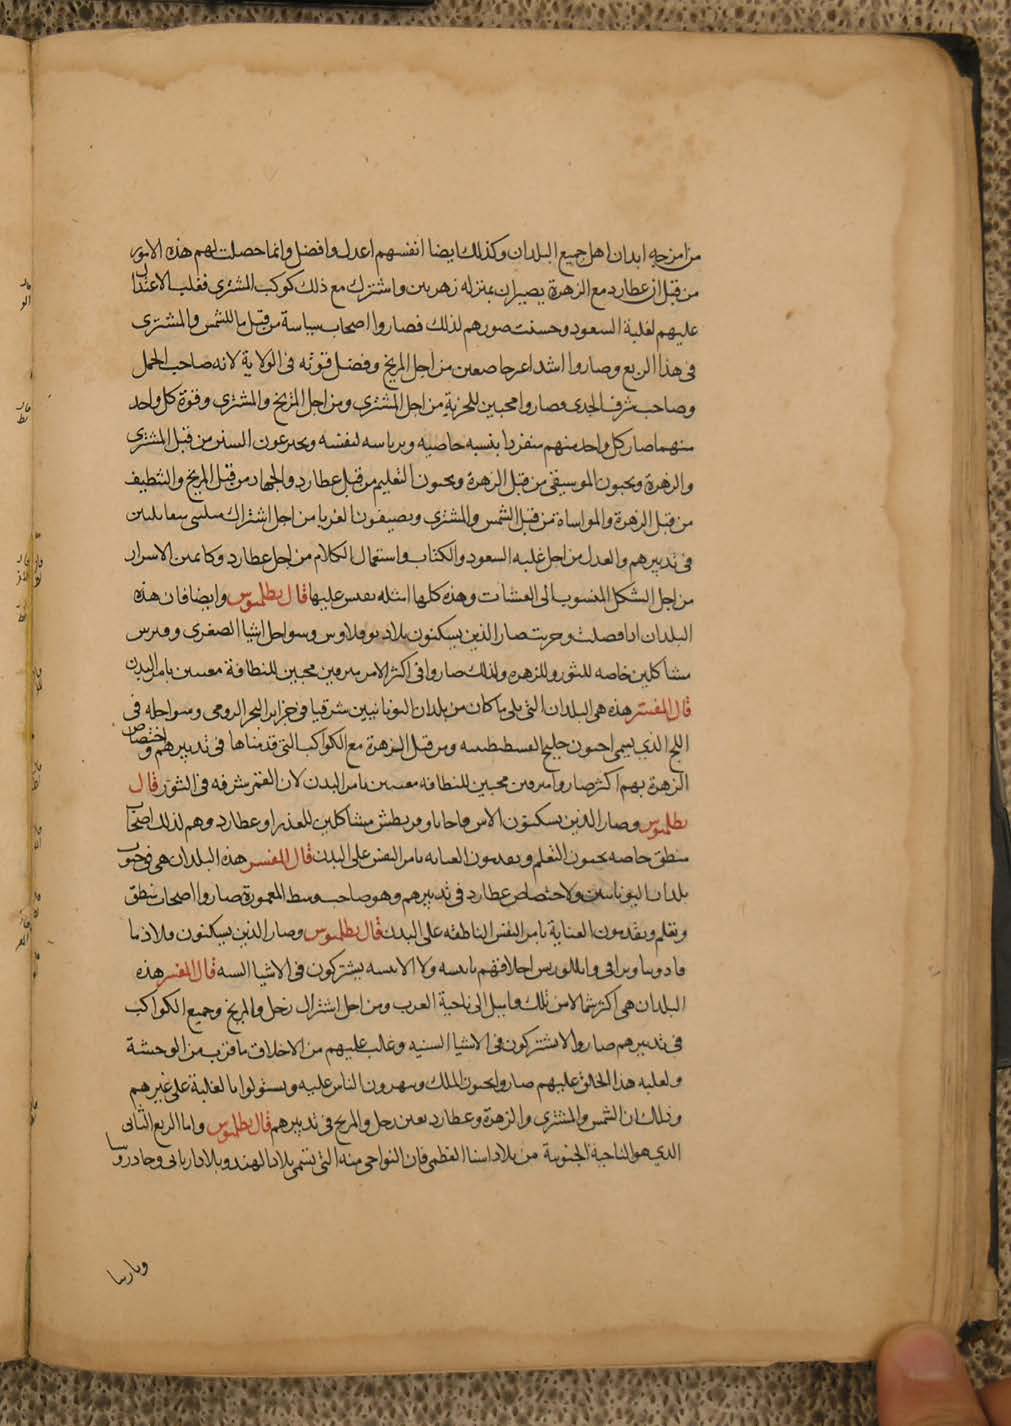 من امزجه ابدان اهل جميع البلدان وكذلك ايضا انفسهم اعدل وافضل وانما حصلت لهم هذه الامور
من قبل ان عطارد مع الزهرة يصيران بمنزله زهرتين واشترك مع ذلك كوكب المشترى فغلب الاعتدال
عليهم لغلبة السعود وحسنت صورهم لذلك فصاروا اصحاب سياسة من قبل ما للشمس والمشترى
فى هذا الربع وصاروا اشدا من اجل المريخ وفضل قوته فى الولاية لانه صاحب الحمل
وصاحب شرف الجدى فصاروا محبين للحرية من اجل المشترى ومن اجل المريخ والمشترى وقوة كل واحد
منهما صار كل واحد منهم منفردا بنفسه وبرياسه لنفسه السنن من قبل المشترى
والزهرة ويحبون الموسيقى من قبل الزهرة ويحبون التعليم من قبل عطارد والجهاد من قبل المريخ والتنظيف
من قبل الزهرة والمواساة من قبل الشمس والمشترى ويضيفون الغربا من اجل اشتراك
فى تدبيرهم والعدل من اجل غلبه السعود والكتاب واستعمال الكلام من اجل عطارد وكاتمين الاسرار
من اجل الشكل المنسوب الى العشيات وهذه كلها امثله نقيس عليها قال بطلميوس وايضا فان هذه
البلدان اذا فصلت وجزيت صار الذين يسكنون بلاد وسواحل اشيا الصغرى وقبرس
مشاكلين خاصه للثور وللزهره ولذلك صاروا فى اكثر الامر مترفين محبين للنظافة معنيين بامر البدن
قال المفسر هذه هى البلدان التى يلى ما كان من بلدان اليونانيين شرقيا فى جزاير البحر الرومى وسواحله فى
اللج الذى يسمى خليج ومن قبل الزهرة مع الكواكب التى قدمناها فى تدبيرهم واختصاص
الزهرة بهم اكثر صاروا مترفين محبين للنظافه معنيين بامر البدن لان القمر شرفه فى الثور قال
بطلميوس وصار الذين يسكنون وقريطش مشاكلين للعذرا وعطارد وهم لذلك اصحاب
منطق خاصه يحبون التعلم ويقدمون العنايه بامر النفس على البدن قال المفسر هذه البلدان هى فى جنوب
بلدان اليونانيين ولاختصاص عطارد فى تدبيرهم وهو صاحب وسط المعمورة صاروا اصحاب منطق
وتعلم ويقدمون العناية بامر النفس الناطقه على البدن قال بطلميوس وصار الذين يسكنون
اخلاقهم يشتركون فى الاشيا السنيه قال المفسر هذه
البلدان هى اكثر شمالا من تلك وتميل الى ناحية العرب ومن اجل اشتراك زحل والمريخ وجميع الكواكب
فى تدبيرهم صاروا لا يشتركون فى الاشيا السنيه وغلب عليهم من الاخلاق ما قرب من الوحشة
ولغلبه هذا الخلق عليهم صاروا يحبون الملك ويقهرون الناس عليه ويستولوا بالغلبة على غيرهم
وذلك ان الشمس والمشترى والزهرة وعطارد تعين زحل والمريخ فى تدبيرهم قال بطلميوس واما الربع الثانى
الذى هو الناحية الجنوبية من بلاد اسيا العظمى فان النواحى منه التى تسمى بلاد الهند وبلاد
وبارثيا